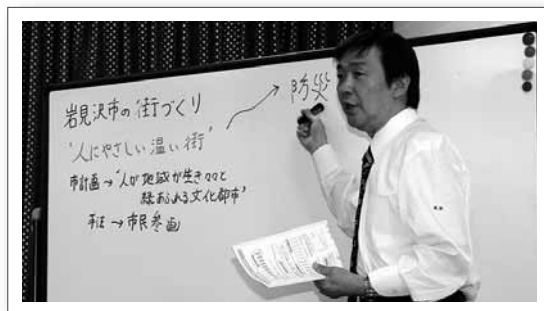 岩見沢市の街づくり
防災
"人にやさしい温い街"
市計画→"人が地域が生き々々と
緑あふれる文化都市"
手法→市民参画